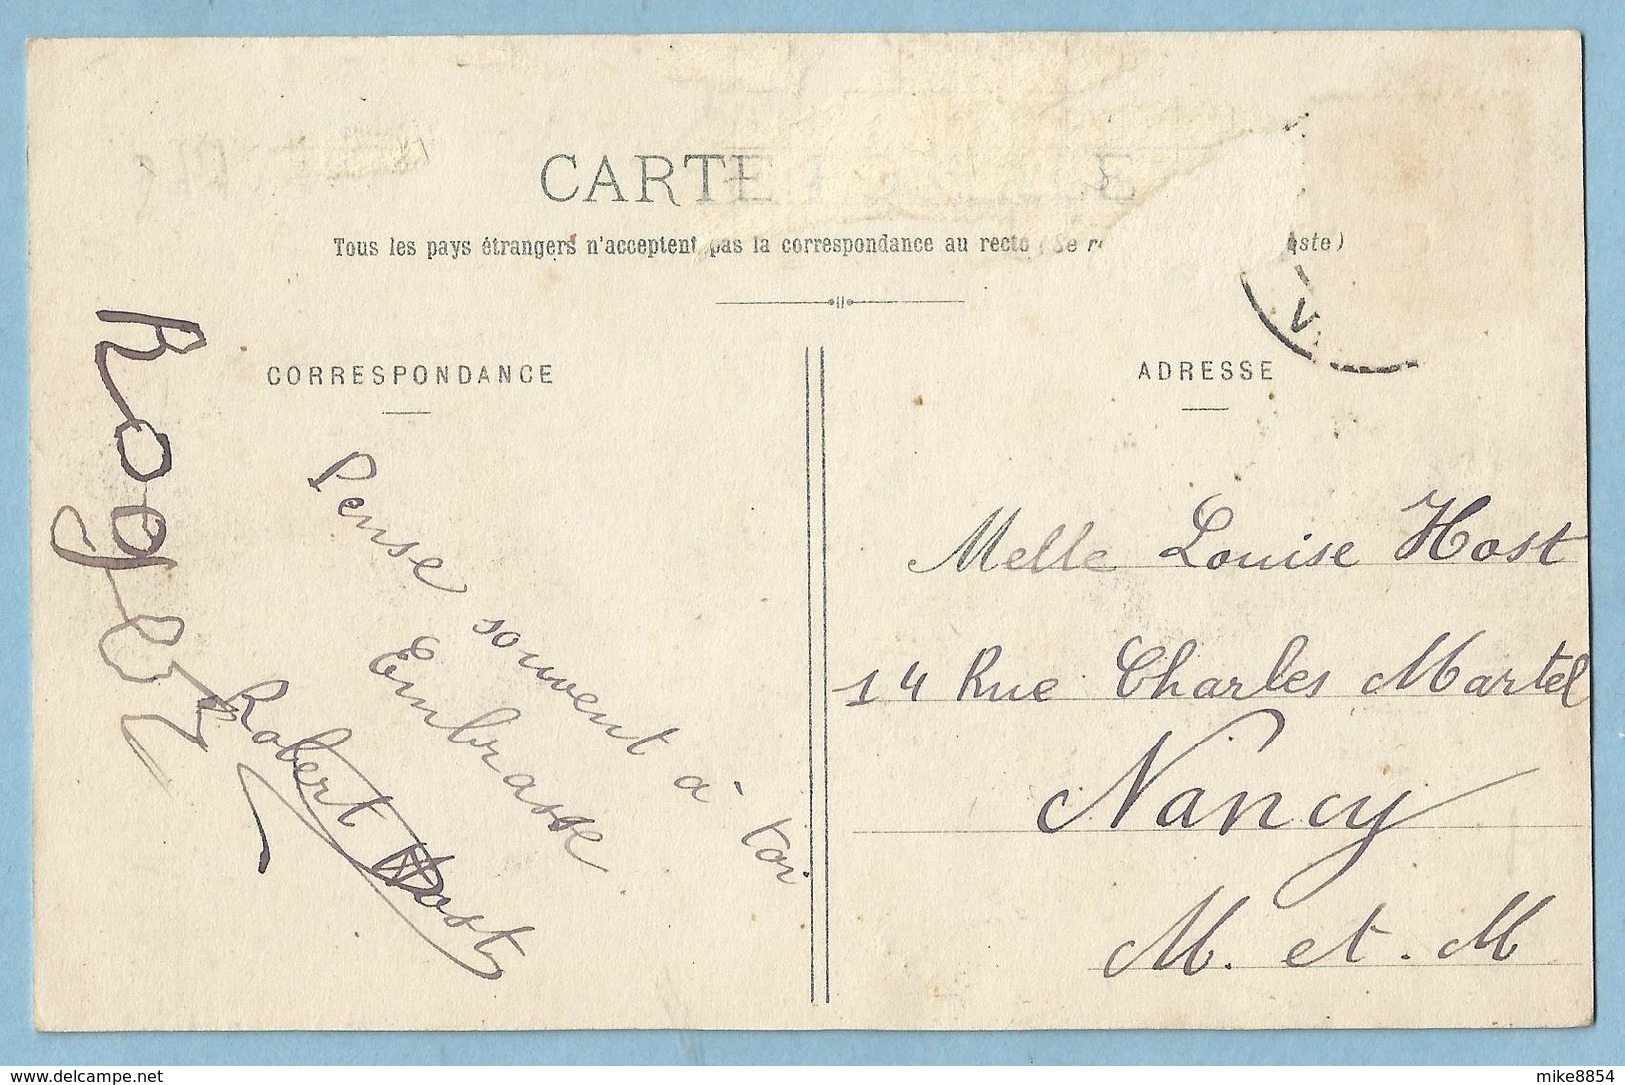 CARTE
Tous les pays étrangers n'acceptent pas la correspondance au recto (Se
CORRESPONDANCE
ADRESSE
Pense souvent à toi
Embrasse
Robert Host
Roger
Melle Louise Host
14 Rue Charles Martel
Nancy
M. et. M
delcampe.net
mike8854